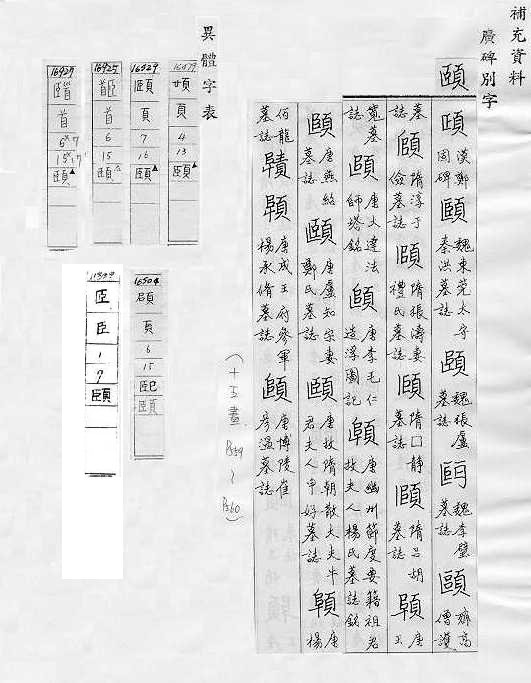 補充資料
廣碑別字
頤
頤 漢鄭固碑 頤 魏東莞太守秦洪墓誌 頤 魏張盧墓誌 魏李璧墓誌 頤 齊高僧護
墓誌 隋淳于儉墓誌 頤 隋張濤妻禮氏墓誌 頤 隋□靜墓誌 頤 隋呂胡墓誌 唐王
寬墓誌 頤 唐大達法師塔銘 唐李毛仁造浮圖記 唐幽州節度要籍祖君故夫人楊氏墓誌銘
頤 唐燕紹墓誌 頤 唐盧知宗妻鄭氏墓誌 頤 唐故隋朝散大夫牛君夫人申好墓誌 唐楊
佰龍墓誌 唐成王府參軍楊永脩墓誌 頤 唐博陵崔彥溫墓誌
(十五畫 P559~P560)
異體字表
頁 4 13 頤
16929 頤 頁 7 16 頤
16925 首 6 15 頤
16927 首 頤
16504 頁 6 15 熙 頤
臣 臣 1 7 頤